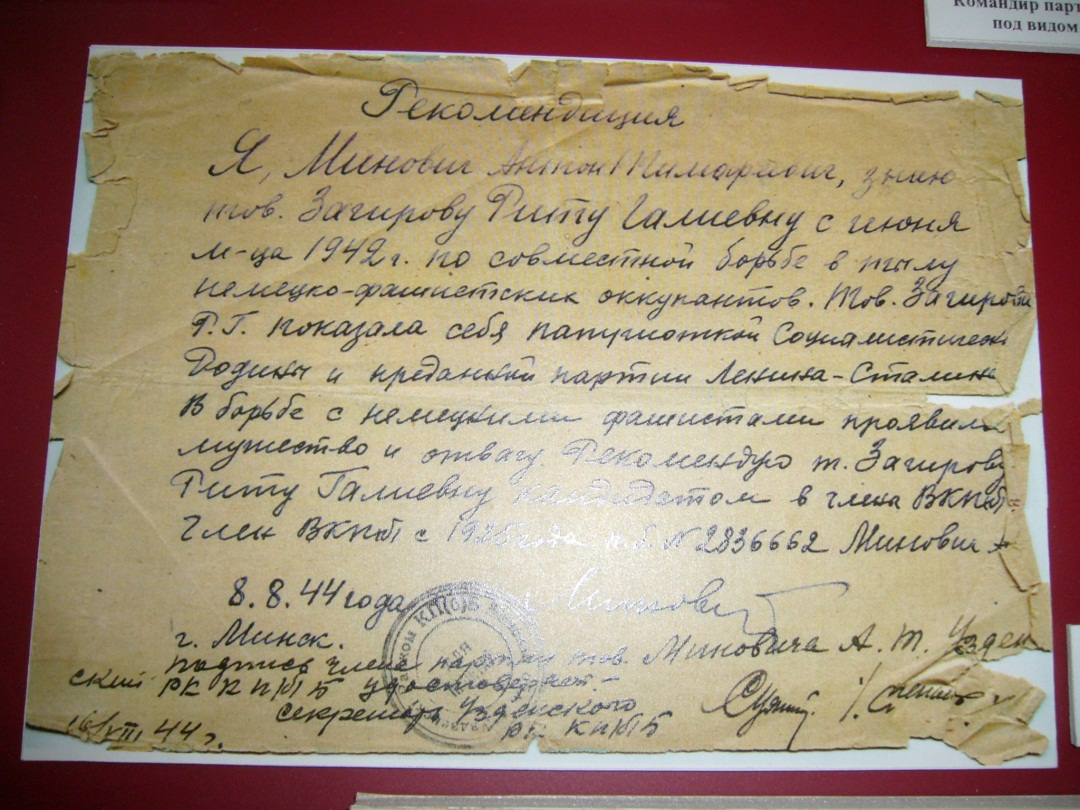 Командир парт
под видом
Рекомендация
Я, Минович Антон Тимофеевич, знаю
тов. Загирову Риту Галиевну с июня
м-ца 1942 г. по совместной борьбе в тылу
немецко-фашистских оккупантов. Тов. Загирова
Р.Г. показала себя патриоткой Социалистическ
Родины и преданной партии Ленина-Сталина
В борьбе с немецкими фашистами проявила
мужество и отвагу. Рекомендую т. Загирову
Риту Галиевну кандидатом в члена ВКП(б).
Член ВКП(б) с года п.б. № 2836662 Минович А
8.8.44 года
г. Минск.
КП(б)Б
подпись члена партии тов. Миновича А. Т. Узден
ский РК КП(б)Б удостоверяет.-
секретарь Узденского
РК КП(б)Б
16/VIII 44 г.